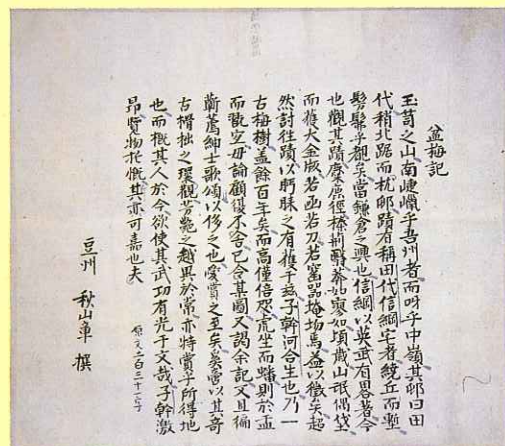 盆梅記
玉笥之山南崚巘乎吾州者而叫乎中嶺其邨曰田
代稍北踞而枕邨蹟有稱田代信綱宅者繞丘而塹
髣髴乎觀矣當鎌倉之興也信綱以英武有畧著今
也觀其蹟廢廃徑榛荆翳蓁如寥如頃歲山氓偶
而獲大金版若函若刀若窰器埯塲焉益以徵矣超
然討往蹟以眄眛之有獲于茲子幹河合生也乃一
古梅樹蓋餘百年矣而高僅倍咫虎坐而蟠則於盂
而戴空毋論顧復不舍已合其圖又謁余記文且徧
蘄薦紳士歌頌以侈之也愛賞之至矣奚啻以其奇
古榾柮之環觀芳艶之越異於常亦特賞乎所得地
也而慨其人於今欲使其武功有光于文哉子幹激
昂賢物抱慨其亦可嘉也夫
豆州 秋山章 撰